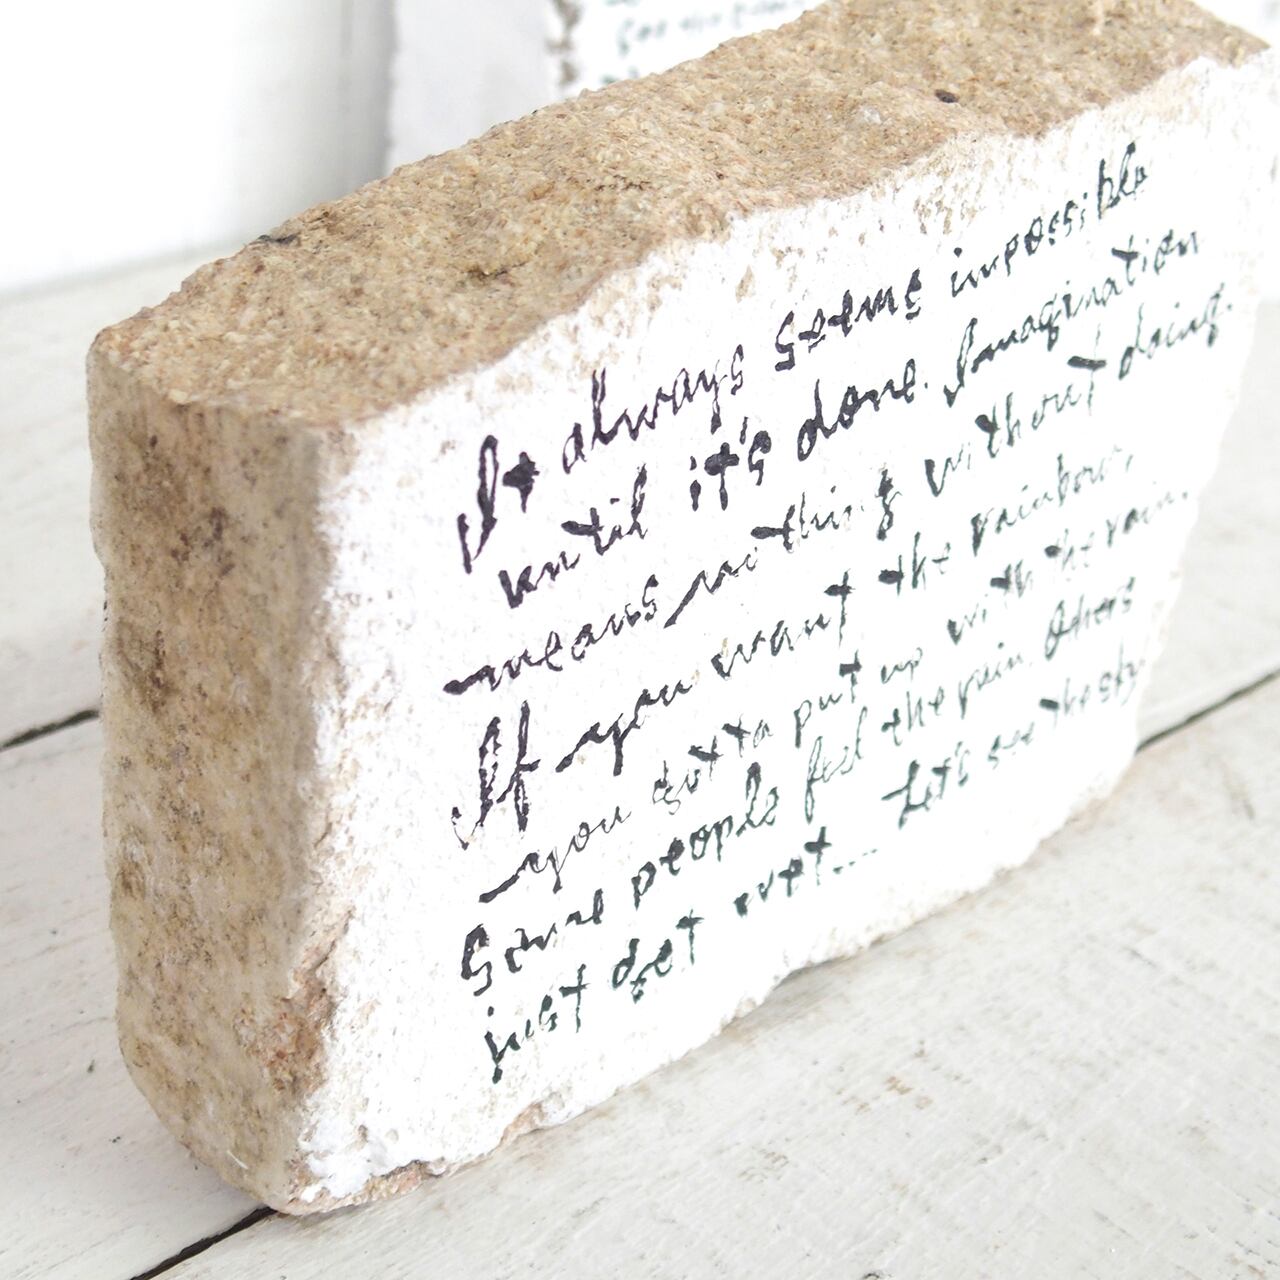 It always seems impossible
until it's done. Imagination
means nothing without doing.
If you want the rainbow,
you gotta put up with the rain.
Some people feel the rain. Others
just get wet.... Let's see the sky